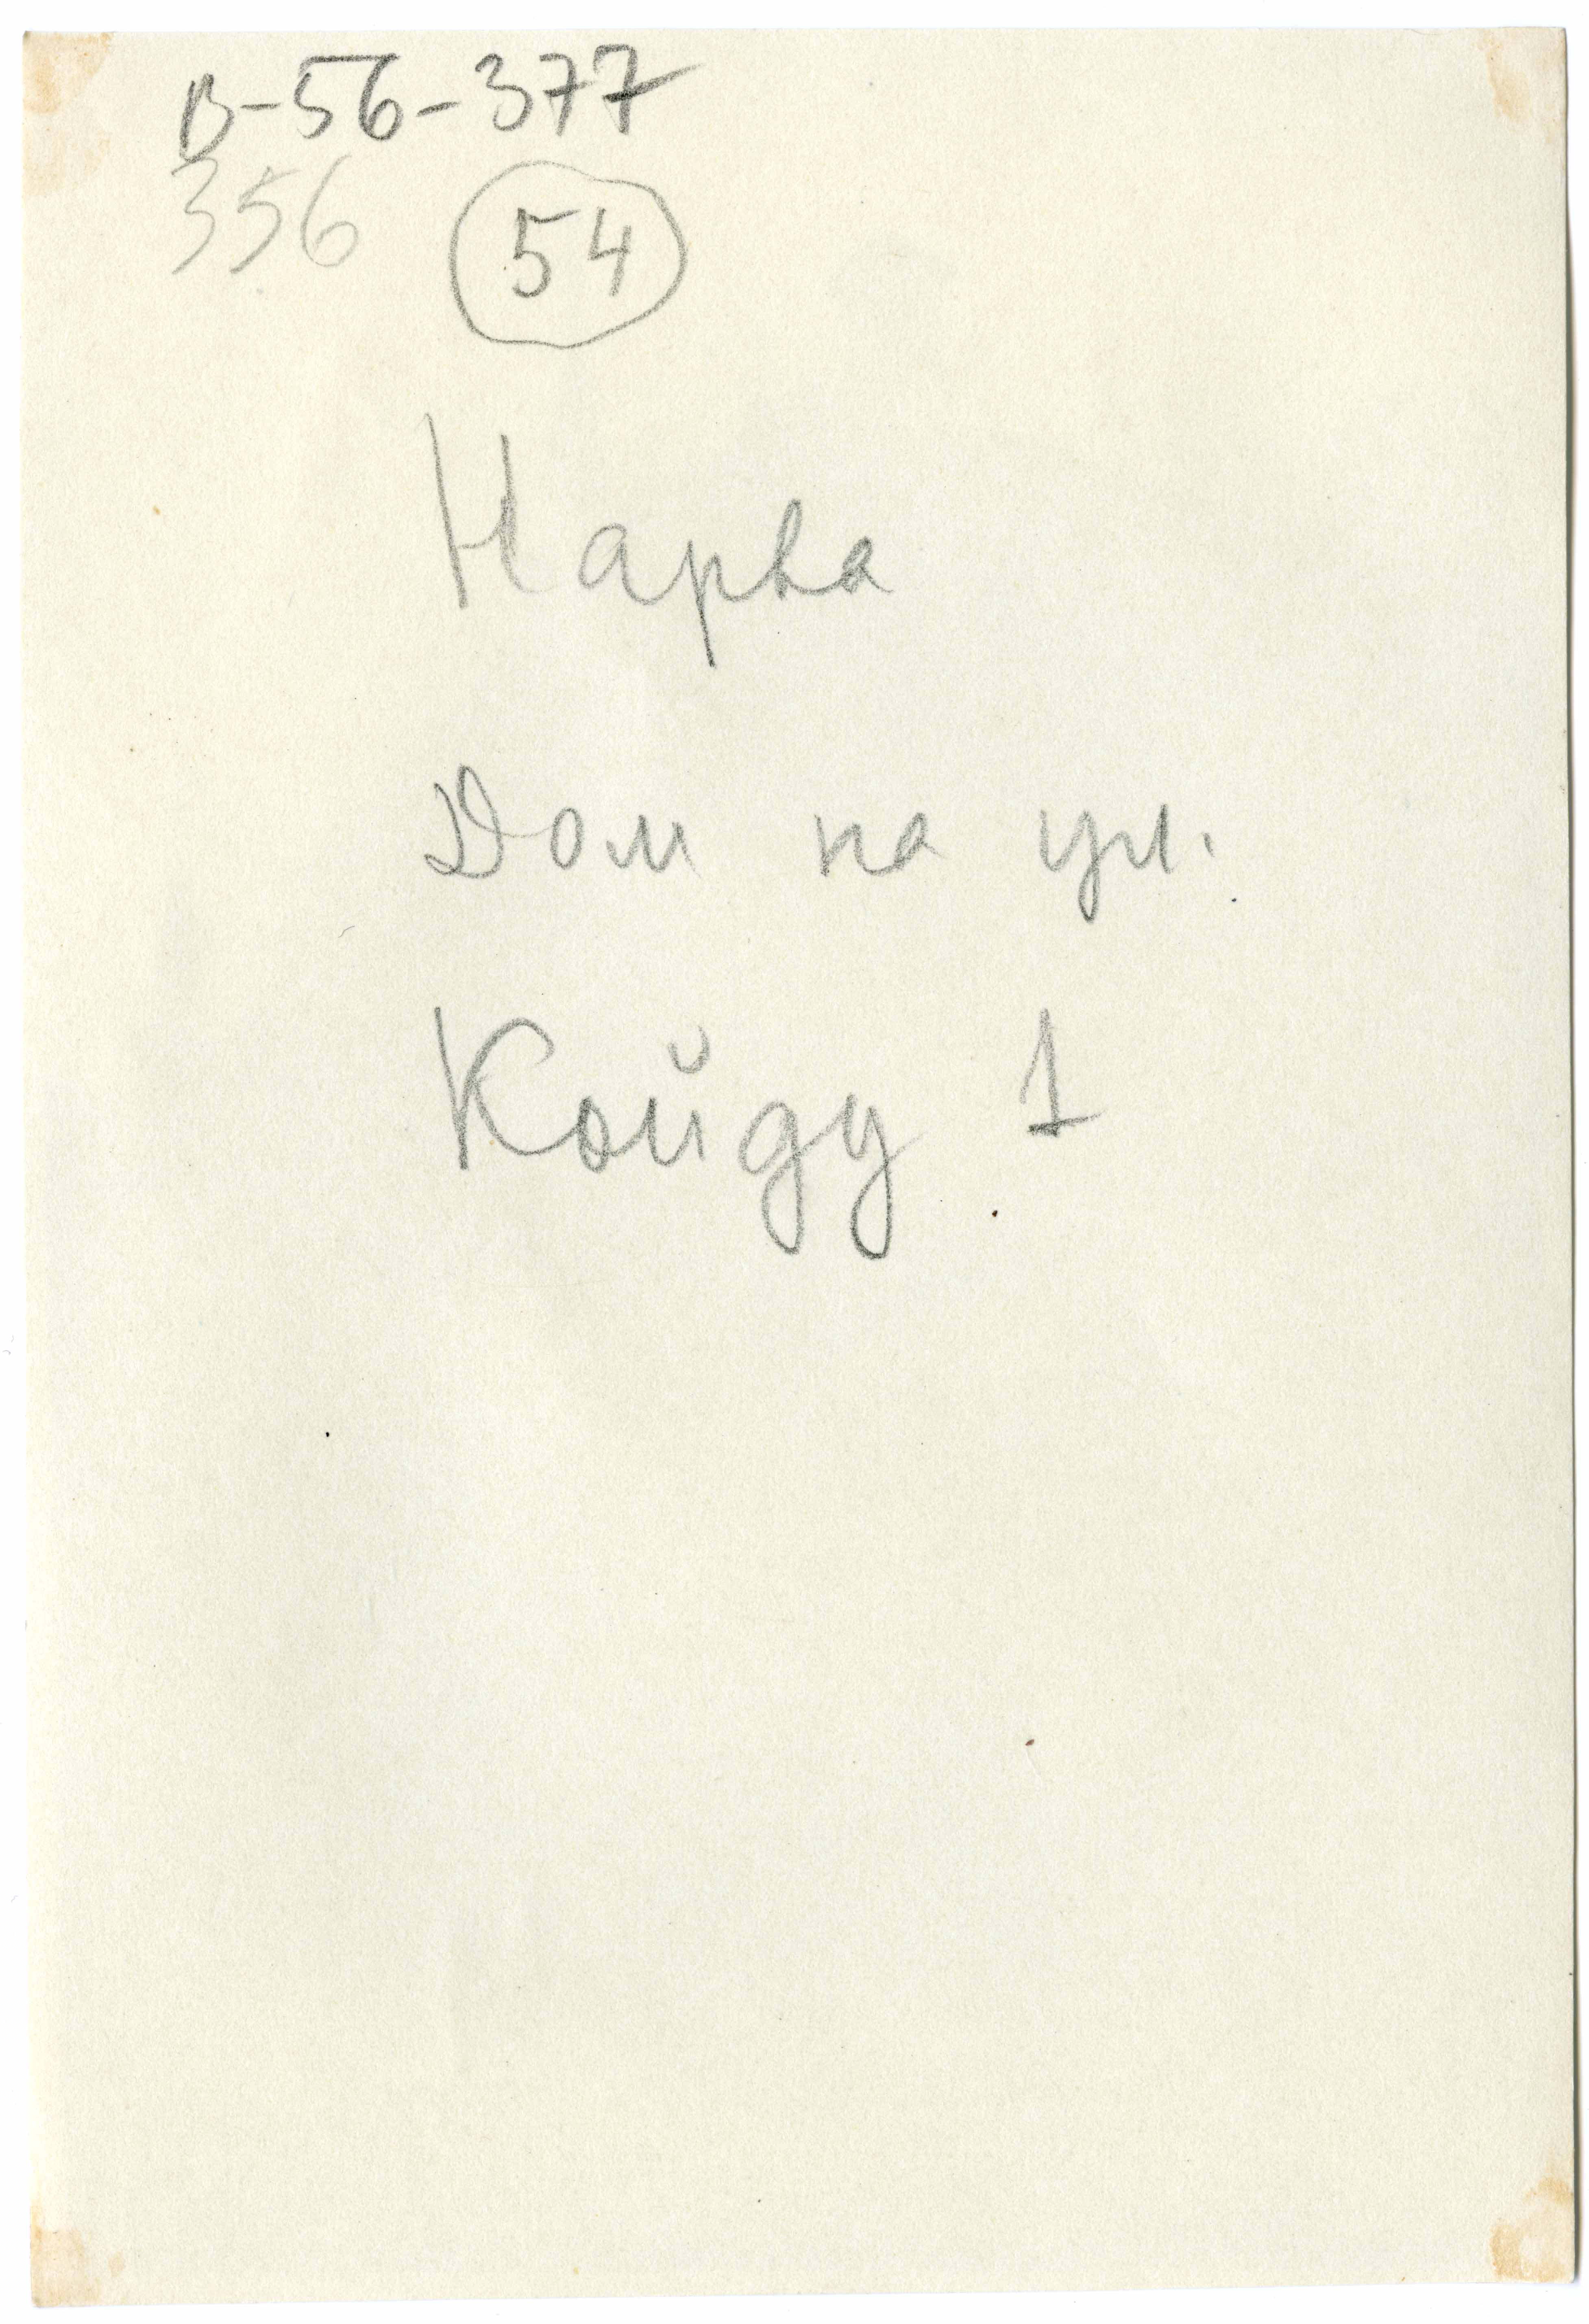 В-56-377
356 54
Нарва
Дом на ул.
Койду 1